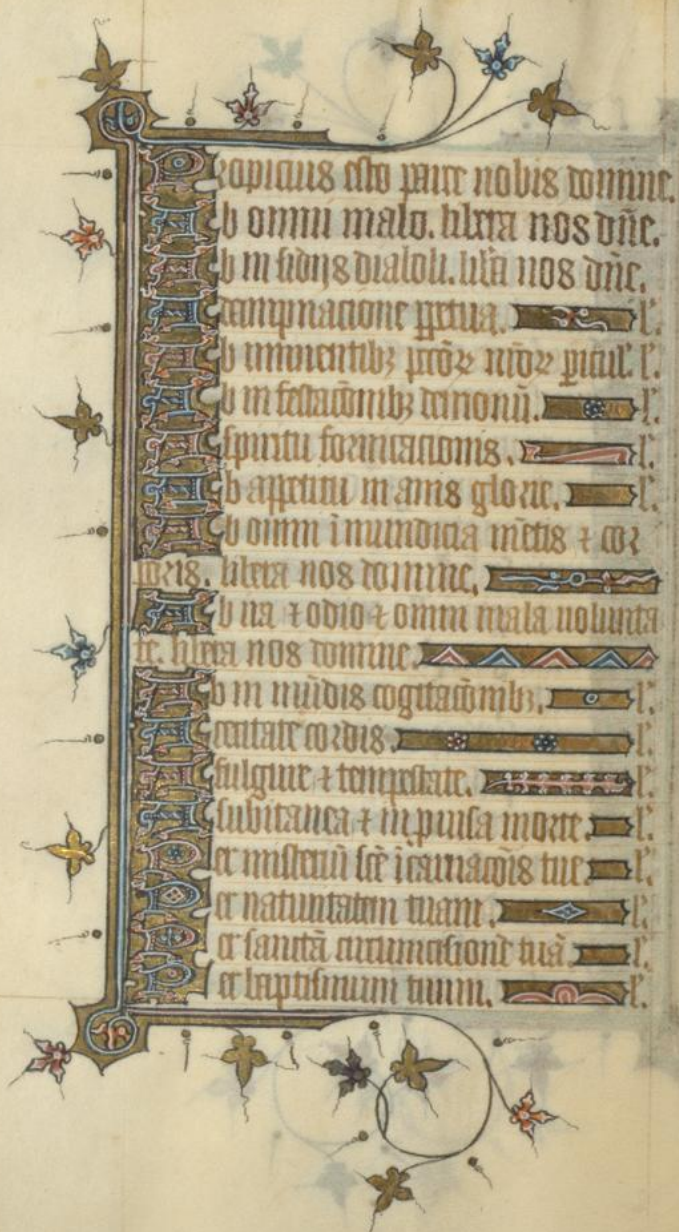 Propicius esto parce nobis domine.
Ab omni malo. libera nos dñe.
Ab in sidijs diaboli. liba nos dñe.
A dampnacione ppetua. l'.
Ab iminentibȝ pctõꝝ nrõꝝ picul'. l'.
Ab in festacõnibȝ demonũ. l'.
A spiritu fornicacionis. l'.
Ab appetitu in anis glorie. l'.
Ab omni ĩmundicia mẽtis ⁊ cor
poris. libera nos domine.
Ab ira ⁊ odio ⁊ omni mala uolunta
te. libera nos domine.
Ab in mũdis cogitacõnibȝ. l'.
A cecitate cordis. l'.
A fulgure ⁊ tempestate. l'.
A subitanea ⁊ in puisa morte. l'.
Per misteriũ scẽ ĩcarnacõis tue. l'.
Per natiuitatem tuam. l'.
Per sanctã circumcisionẽ tuã. l'.
Per baptismum tuum. l'.